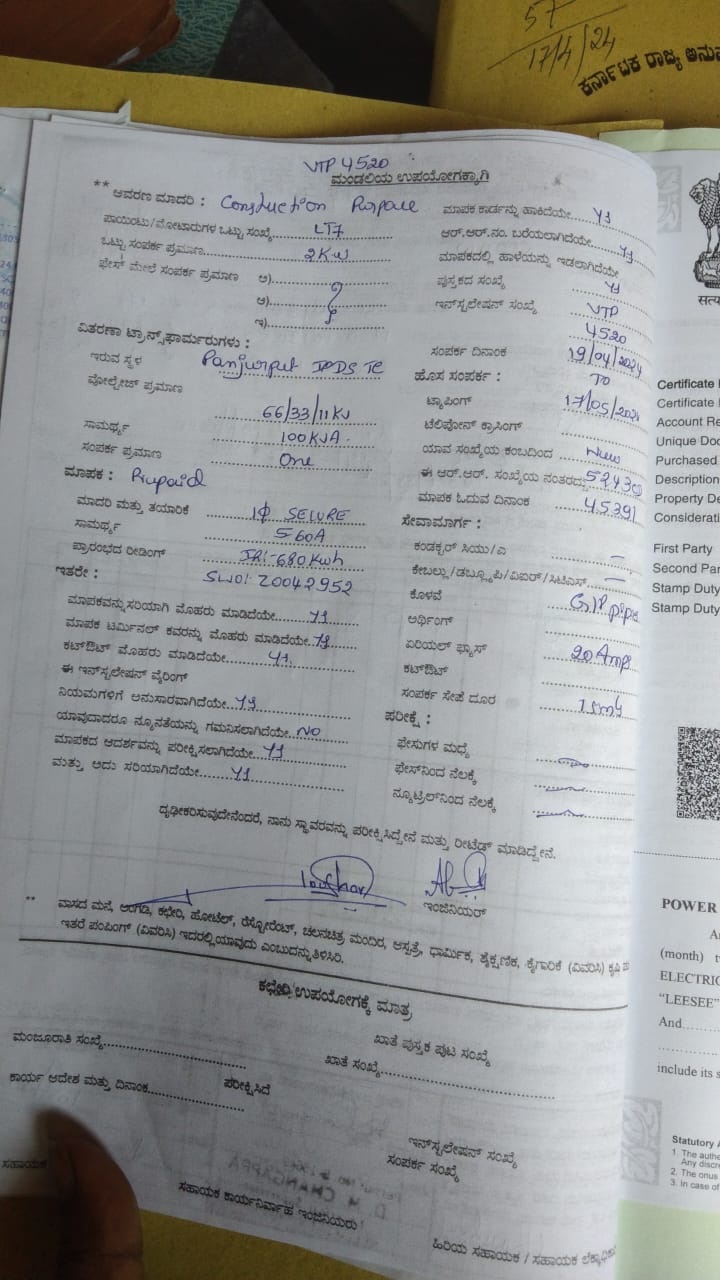 57
17/4/24
ಕರ್ನಾಟಕ ರಾಜ್ಯ
VTP 4520
ಮಂಡಲಿಯ ಉಪಯೋಗಕ್ಕಾಗಿ
** ಆವರಣ ಮಾದರಿ : Construction Purpose
ಪಾಯಿಂಟು/ಮೋಟಾರುಗಳ ಒಟ್ಟು ಸಂಖ್ಯೆ LT7
ಒಟ್ಟು ಸಂಪರ್ಕ ಪ್ರಮಾಣ 2KW
ಫೇಸ್ ಮೇಲೆ ಸಂಪರ್ಕ ಪ್ರಮಾಣ ಅ)
ಆ)
ಇ)
ವಿತರಣಾ ಟ್ರಾನ್ಸ್‌ಫಾರ್ಮರುಗಳು :
ಇರುವ ಸ್ಥಳ
ವೋಲ್ಟೇಜ್ ಪ್ರಮಾಣ 66/33/11KV
ಸಾಮರ್ಥ್ಯ 100KVA
ಸಂಪರ್ಕ ಪ್ರಮಾಣ One
ಮಾಪಕ :
ಮಾದರಿ ಮತ್ತು ತಯಾರಿಕೆ 1Φ SECURE
ಸಾಮರ್ಥ್ಯ 5-60A
ಪ್ರಾರಂಭದ ರೀಡಿಂಗ್ IR:-680 Kwh
ಇತರೇ : 20042952
ಮಾಪಕವನ್ನು ಸರಿಯಾಗಿ ಮೊಹರು ಮಾಡಿದೆಯೇ YS
ಮಾಪಕ ಟರ್ಮಿನಲ್ ಕವರನ್ನು ಮೊಹರು ಮಾಡಿದೆಯೇ YS
ಕಟ್‌ಔಟ್ ಮೊಹರು ಮಾಡಿದೆಯೇ YS
ಈ ಇನ್‌ಸ್ಟಲೇಷನ್ ವೈರಿಂಗ್
ನಿಯಮಗಳಿಗೆ ಅನುಸಾರವಾಗಿದೆಯೇ YS
ಯಾವುದಾದರೂ ನ್ಯೂನತೆಯನ್ನು ಗಮನಿಸಲಾಗಿದೆಯೇ NO
ಮಾಪಕದ ಆದರ್ಶವನ್ನು ಪರೀಕ್ಷಿಸಲಾಗಿದೆಯೇ YS
ಮತ್ತು ಅದು ಸರಿಯಾಗಿದೆಯೇ YS
ಮಾಪಕ ಕಾರ್ಡನ್ನು ಹಾಕಿದೆಯೇ YS
ಆರ್.ಆರ್.ನಂ. ಬರೆಯಲಾಗಿದೆಯೇ YS
ಮಾಪಕದಲ್ಲಿ ಹಾಳೆಯನ್ನು ಇಡಲಾಗಿದೆಯೇ YS
ಪುಸ್ತಕದ ಸಂಖ್ಯೆ
ಇನ್‌ಸ್ಟಲೇಷನ್ ಸಂಖ್ಯೆ VTP
4520
ಸಂಪರ್ಕ ದಿನಾಂಕ 19/04/2024
ಹೊಸ ಸಂಪರ್ಕ : TO
ಟ್ಯಾಪಿಂಗ್ 17/05/2024
ಟೆಲಿಫೋನ್ ಕ್ರಾಸಿಂಗ್
ಯಾವ ಸಂಖ್ಯೆಯ ಕಂಬದಿಂದ New
ಈ ಆರ್.ಆರ್. ಸಂಖ್ಯೆಯ ನಂತರದ್ದು
ಮಾಪಕ ಓದುವ ದಿನಾಂಕ 45391
ಸೇವಾಮಾರ್ಗ :
ಕಂಡಕ್ಟರ್ ಸಿಯು/ಎ –
ಕೇಬಲ್ಲು/ಡಬ್ಲ್ಯೂಪಿ/ವಿಐಆರ್/ಸಿಟಿಎಸ್ –
ಕೊಳವೆ GI Pipe
ಅರ್ಥಿಂಗ್
ಏರಿಯಲ್ ಫ್ಯೂಸ್ 20 Amp
ಕಟ್‌ಔಟ್
ಸಂಪರ್ಕ ಸೇಪೆ ದೂರ
ಪರೀಕ್ಷೆ :
ಫೇಸುಗಳ ಮಧ್ಯೆ
ಫೇಸ್‌ನಿಂದ ನೆಲಕ್ಕೆ
ನ್ಯೂಟ್ರಲ್‌ನಿಂದ ನೆಲಕ್ಕೆ
ದೃಢೀಕರಿಸುವುದೇನೆಂದರೆ, ನಾನು ಸ್ಥಾವರವನ್ನು ಪರೀಕ್ಷಿಸಿದ್ದೇನೆ ಮತ್ತು ರೀಟೆಡ್ ಮಾಡಿದ್ದೇನೆ.
ಇಂಜಿನಿಯರ್
** ವಾಸದ ಮನೆ, ಅಂಗಡಿ, ಕಛೇರಿ, ಹೋಟೆಲ್, ರೆಸ್ಟೋರೆಂಟ್, ಚಲನಚಿತ್ರ ಮಂದಿರ, ಆಸ್ಪತ್ರೆ, ಧಾರ್ಮಿಕ, ಶೈಕ್ಷಣಿಕ, ಕೈಗಾರಿಕೆ (ವಿವರಿಸಿ) ಕೃಷಿ
ಇತರೆ ಪಂಪಿಂಗ್ (ವಿವರಿಸಿ) ಇದರಲ್ಲಿ ಯಾವುದು ಎಂಬುದನ್ನು ತಿಳಿಸಿರಿ.
ಕಛೇರಿ ಉಪಯೋಗಕ್ಕೆ ಮಾತ್ರ
ಮಂಜೂರಾತಿ ಸಂಖ್ಯೆ
ಖಾತೆ ಪುಸ್ತಕ ಪುಟ ಸಂಖ್ಯೆ
ಕಾರ್ಯ ಆದೇಶ ಮತ್ತು ದಿನಾಂಕ
ಪರೀಕ್ಷಿಸಿದೆ
ಖಾತೆ ಸಂಖ್ಯೆ
ಇನ್‌ಸ್ಟಲೇಷನ್ ಸಂಖ್ಯೆ
ಸಂಪರ್ಕ ಸಂಖ್ಯೆ
ಸಹಾಯಕ
ಸಹಾಯಕ ಕಾರ್ಯನಿರ್ವಾಹ ಇಂಜಿನಿಯರು
ಹಿರಿಯ ಸಹಾಯಕ / ಸಹಾಯಕ
Certificate
Certificate
Account Re
Unique Doc
Purchased
Description
Property De
Considerati
First Party
Second Par
Stamp Duty
Stamp Duty
POWER
(month)
ELECTRIC
"LEESEE"
And
include its s
Statutory A
1. The authe
Any discre
2. The onus
3. In case of